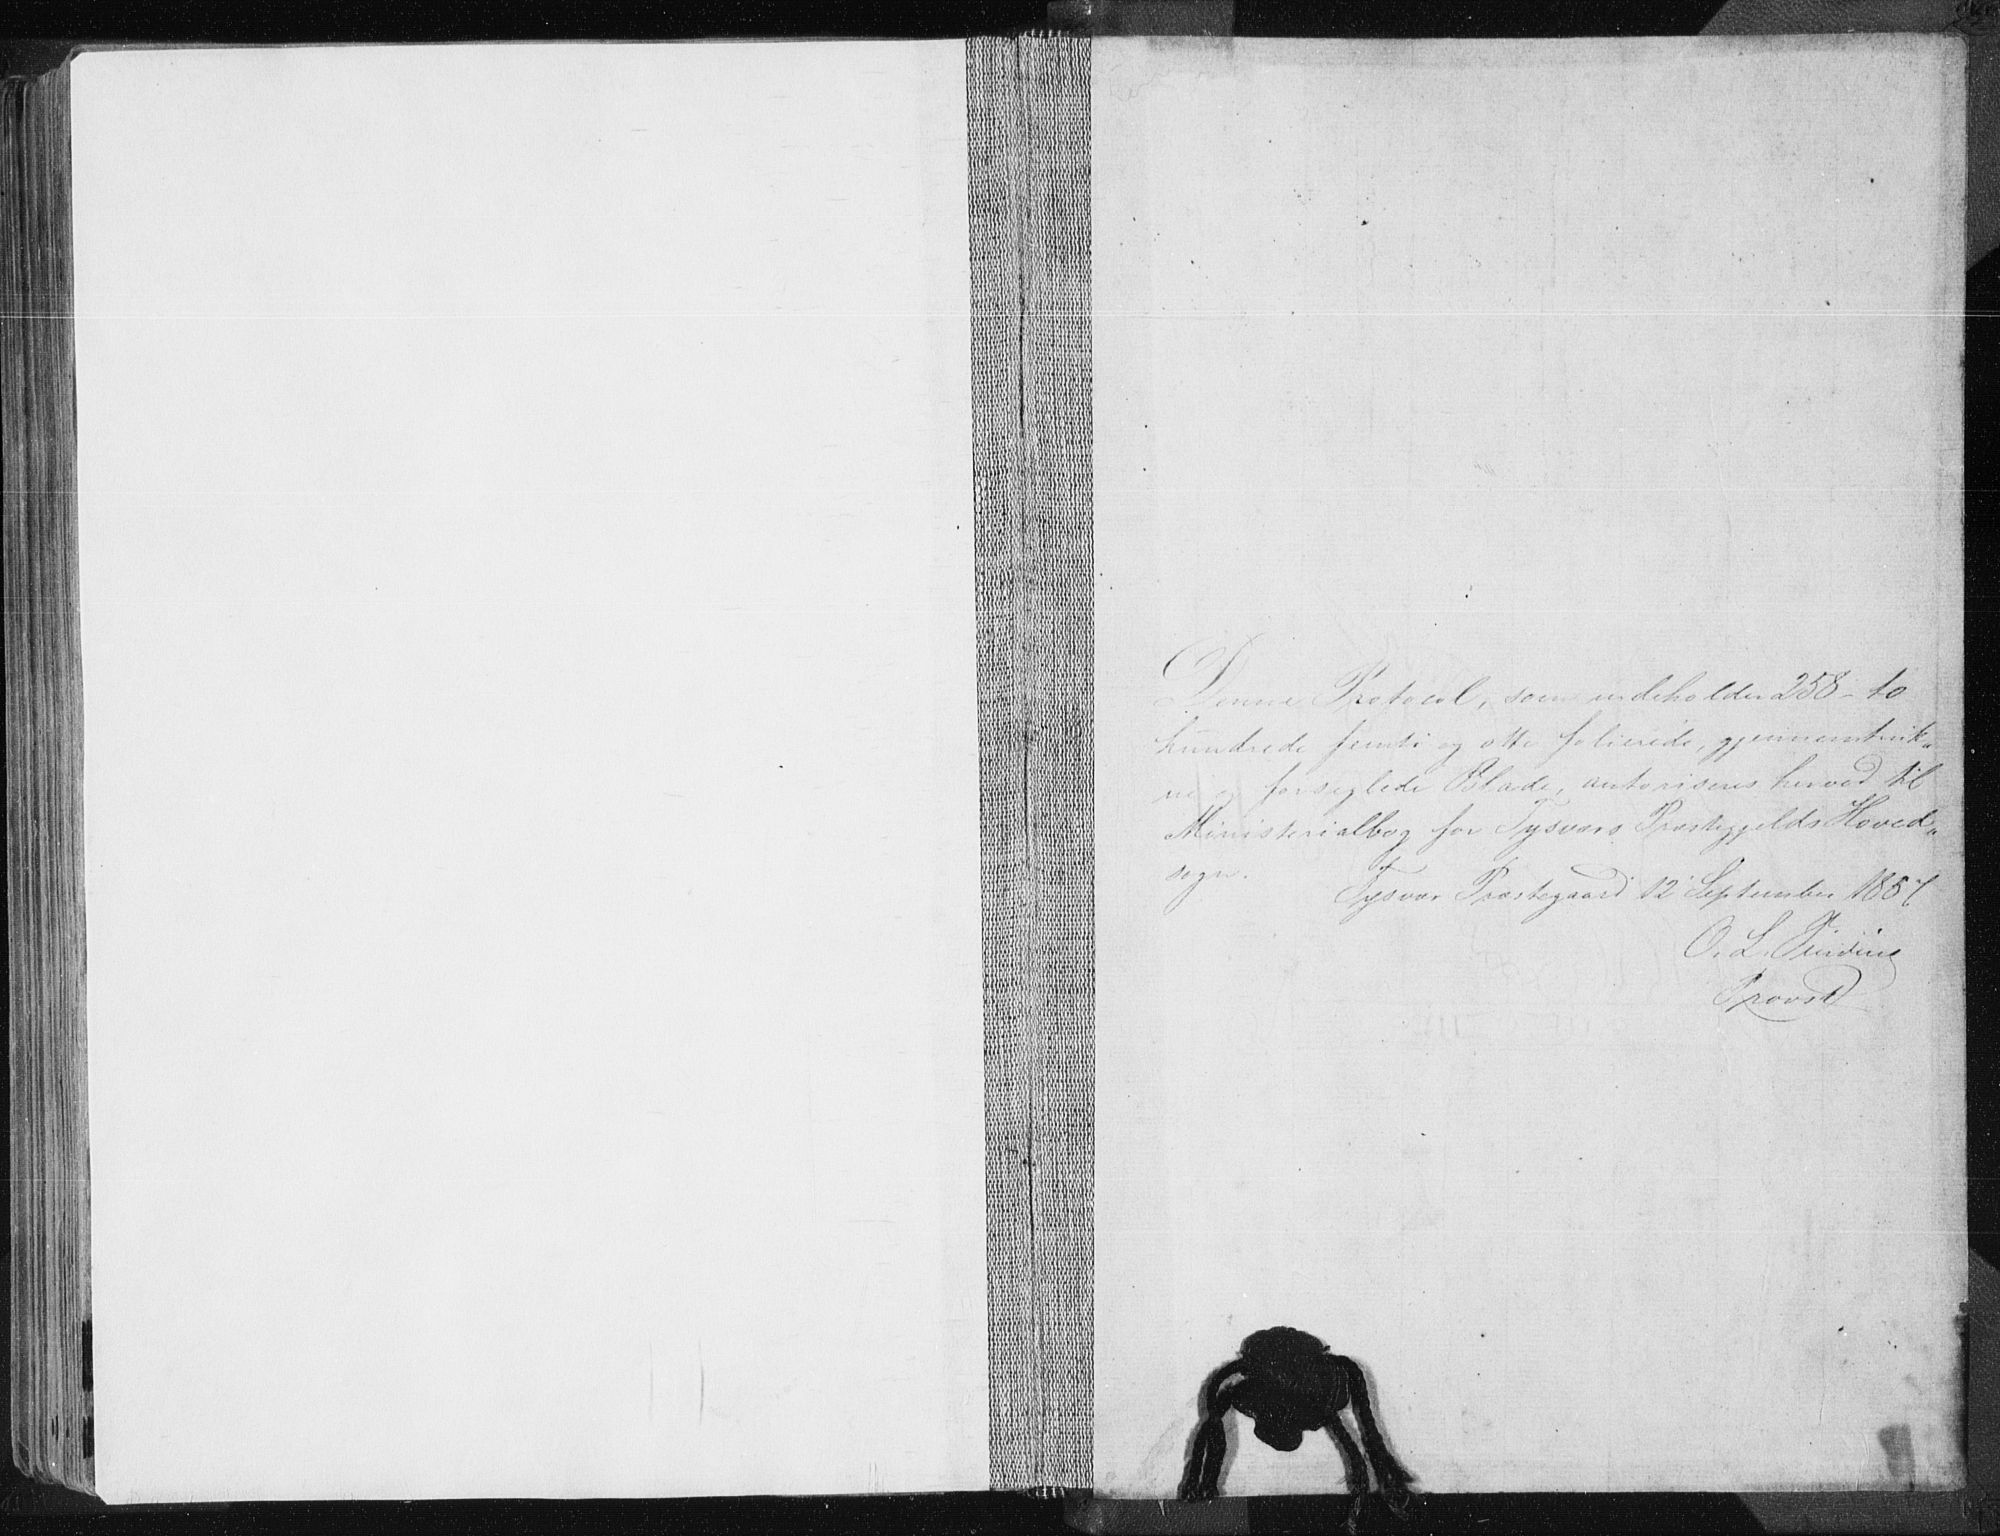 Denne Protocol, som indeholder 258 - to
hundrede femti og otte folierede, gjennemtruk„
ne og forseglede Blade, autoriseres herved til
Ministerialbog for Tysværs Præstegjelds Hoved„
sogn.
Tysvær Præstegaard 12 September 1857
O. L.
Provst